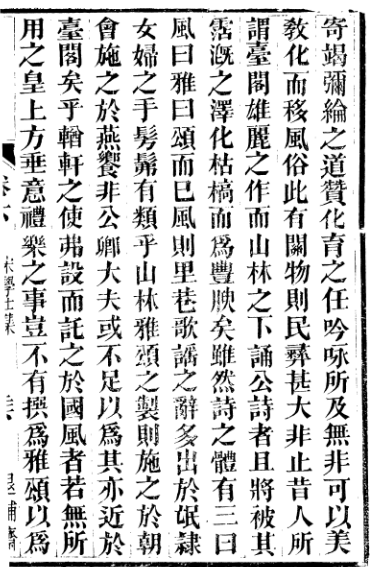 寄竭彌綸之道贊化育之任吟咏所及無非可以美
敎化而移風俗此有關物則民彝甚大非止昔人所
謂臺閣雄麗之作而山林之下誦公詩者且將被其
霑漑之澤化枯槁而爲豐腴矣雖然詩之體有三曰
風曰雅曰頌而已風則里巷歌謠之辭多出於氓隸
女婦之手髣髴有類乎山林雅頌之製則施之於朝
會施之於燕饗非公卿大夫或不足以爲其亦近於
臺閣矣乎輶軒之使弗設而託之於國風者若無所
用之皇上方垂意禮樂之事豈不有撰爲雅頌以爲
宋學士集